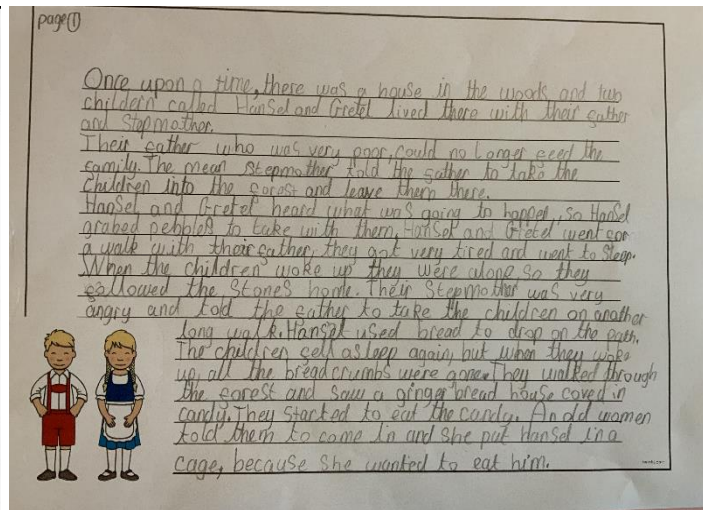 page①
Once upon a time, there was a house in the woods and two
childern called Hansel and Gretel lived there with their father
and stepmother.
Their father who was very poor, could no longer feed the
family. The mean stepmother told the father to take the
children into the forest and leave them there.
Hansel and Gretel heard what was going to happen, so Hansel
grabed pebbles to take with them. Hansel and Gretel went for
a walk with their father, they got very tired and went to sleep.
When the children woke up they were alone so they
followed the stones home. Their stepmother was very
angry and told the father to take the children on another
long walk. Hansel used bread to drop on the path.
The children fell asleep again, but when they woke
up, all the bread crumbs were gone. They walked through
the forest and saw a ginger bread house coved in
candy. They started to eat the candy. An old women
told them to come in and she put Hansel in a
cage, because she wanted to eat him.